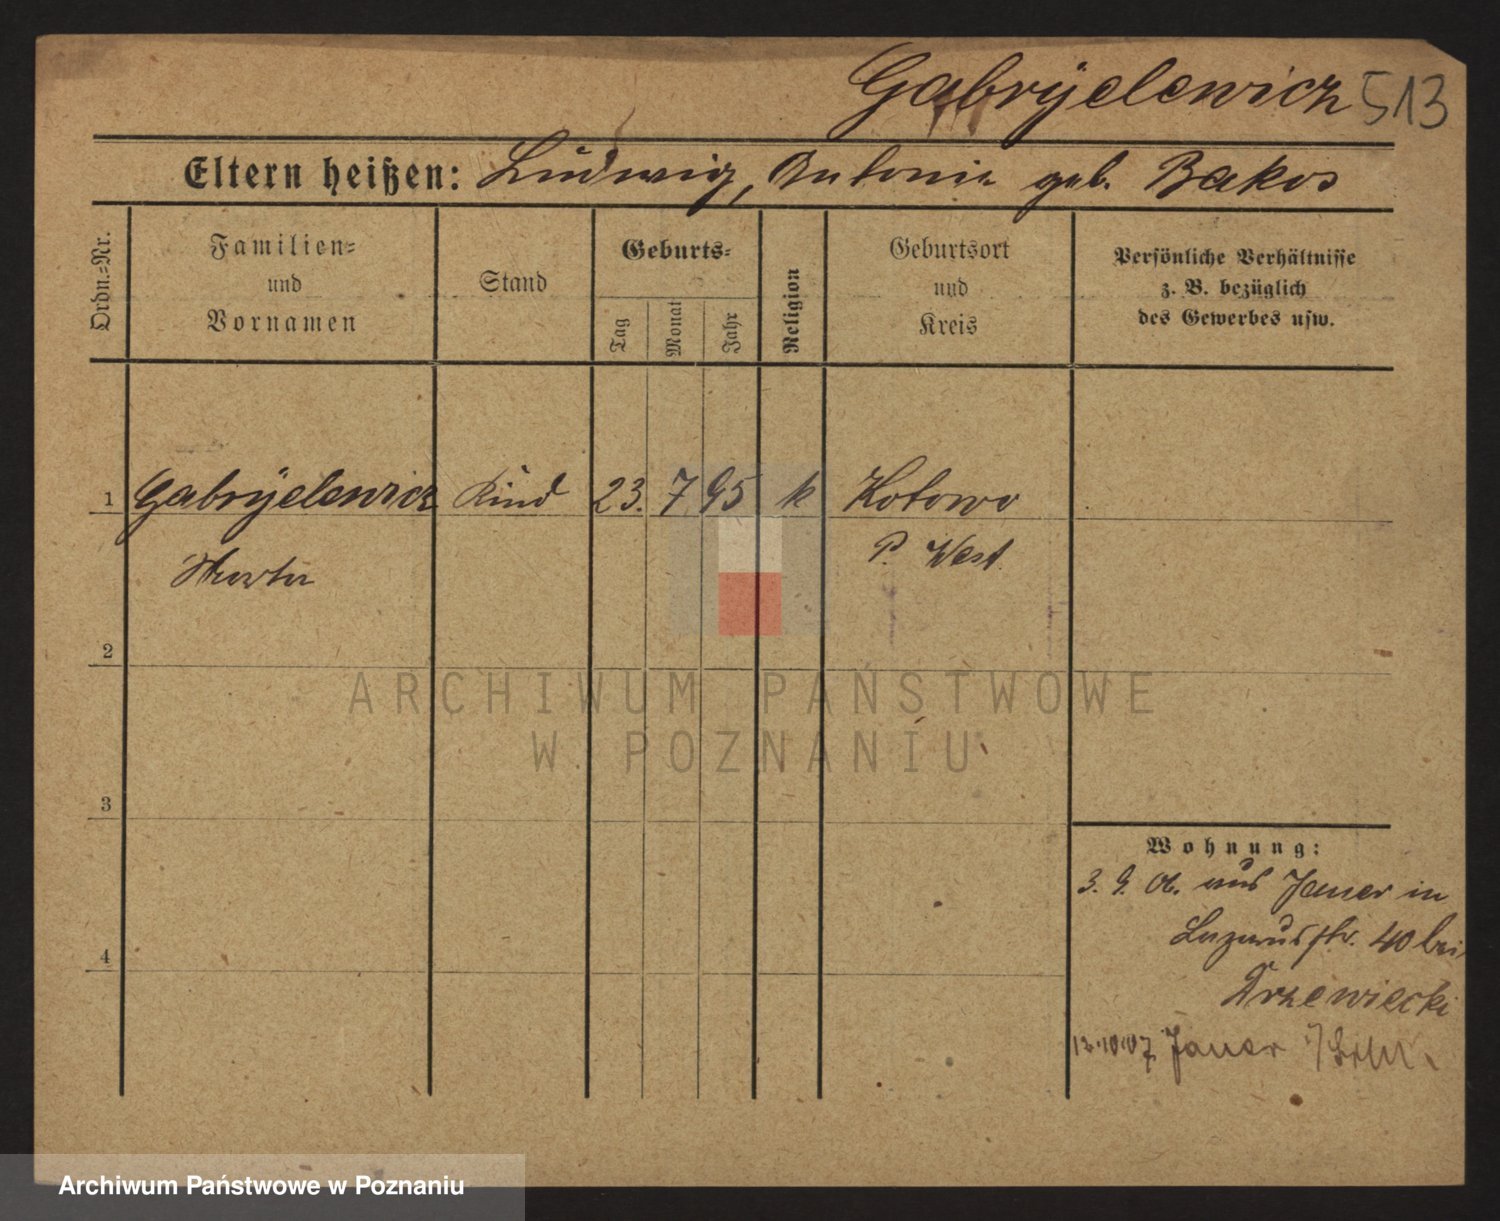 Gabryelewicz 513
Eltern heißen: Ludwig, Antonie geb. Bakos
Ordn.-Nr.
Familien-
und
Vornamen
Stand
Geburts-
Tag
Monat
Jahr
Religion
Geburtsort
und
Kreis
Persönliche Verhältnisse
z. B. bezüglich
des Gewerbes usw.
1 Gabryelewicz Kind 23. 7 95 k Kotowo
P. West.
2
3
4
Wohnung:
3. 9. 06. aus Jauer in
Lazarusstr. 40 bei
Drzewiecki
12.10.07 Jauer
ARCHIWUM PAŃSTWOWE
W POZNANIU
Archiwum Państwowe w Poznaniu